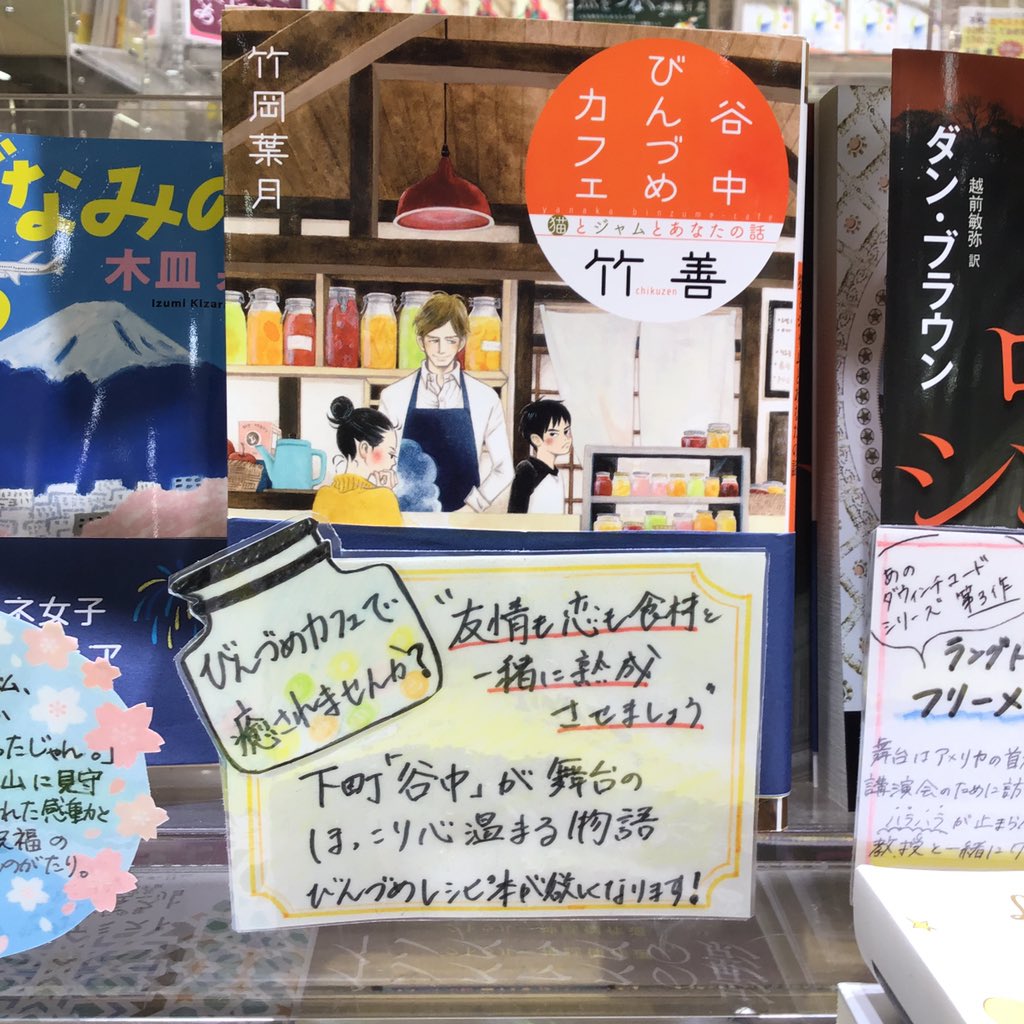 竹岡葉月
谷中
びんづめ
カフェ
yanaka binzume-cafe
猫とジャムとあなたの話
竹善
chikuzen
びんづめカフェで
癒されませんか?
"友情も恋も食材と
一緒に熟成
させましょう"
下町「谷中」が舞台の
ほっこり心温まる物語
びんづめレシピ本が欲しくなります!
なみの
木皿
Izumi Kizar
ネ女子
ア
ったじゃん。」
山に見守
れた感動と
祝福の
ものがたり。
ダン・ブラウン
越前敏弥 訳
シ
あの
ダヴィンチコード
シリーズ 第3作
ラングド
フリーメ
舞台はアメリカの首
講演会のために訪
ハラハラが止まら
教授と一緒にワ